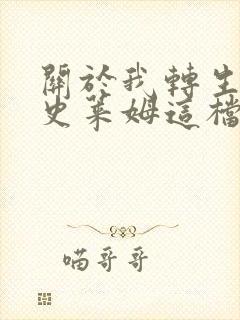 關於我轉生
史萊姆這檔
喵哥哥